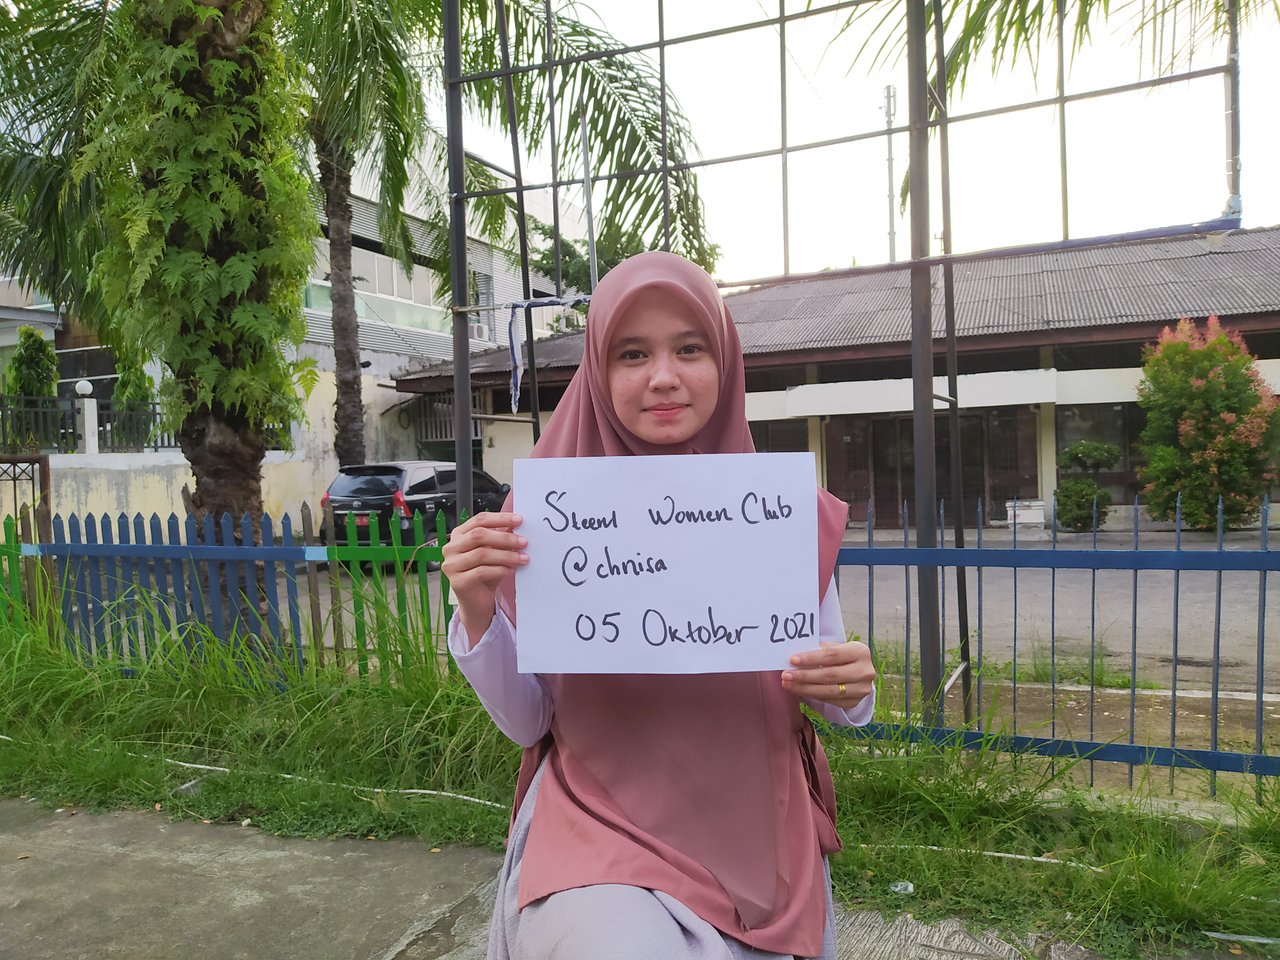 Steem Women Club
@chnisa
05 Oktober 2021